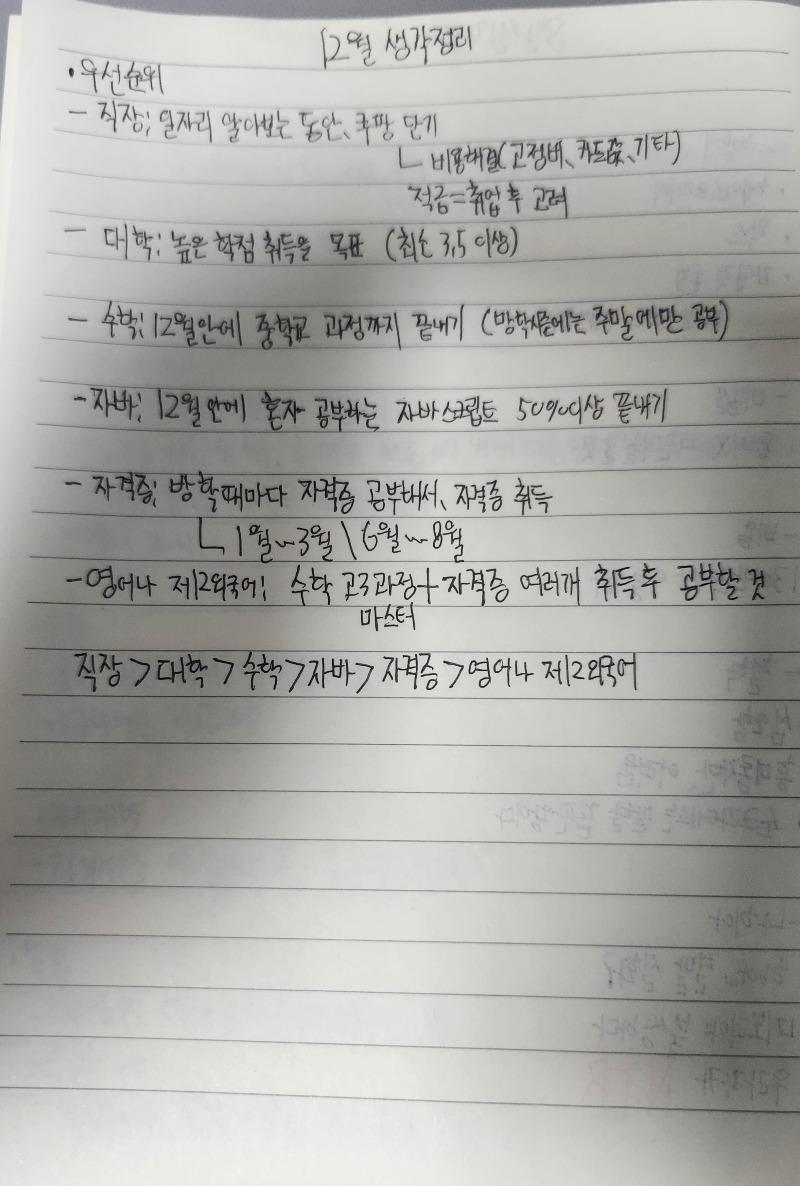 12월 생각정리
• 우선순위
- 직장; 일자리 알아보는 동안, 쿠팡 단기
ㄴ 비용해결(고정비, 카드값, 기타)
적금=취업 후 고려
- 대학; 높은 학점 취득을 목표 (최소 3.5 이상)
- 수학; 12월안에 중학교 과정까지 끝내기 (방학시즌에는 주말에만 공부)
- 자바; 12월안에 혼자 공부하는 자바스크립트 50%이상 끝내기
- 자격증; 방학때마다 자격증 공부해서, 자격증 취득
ㄴ 1월~3월 \ 6월~8월
- 영어나 제12외국어; 수학 고3과정+자격증 여러개 취득후 공부할 것
마스터
직장 > 대학 > 수학 > 자바 > 자격증 > 영어나 제12외국어